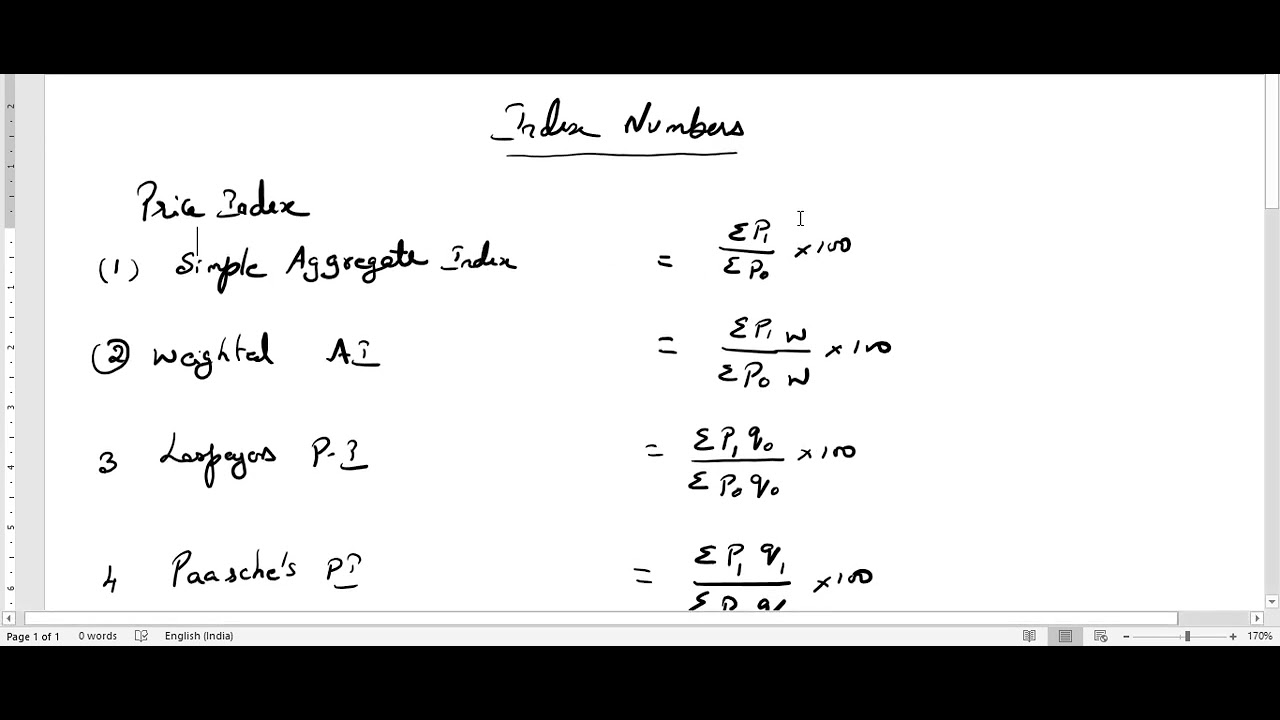 Index Numbers
Price Index
(1) Simple Aggregate Index = ΣP₁ / ΣP₀ × 100
(2) Weighted AI = ΣP₁ W / ΣP₀ W × 100
3 Laspeyars P.I = ΣP₁ q₀ / ΣP₀ q₀ × 100
4 Paasche's PI = ΣP₁ q₁ / Σ P q × 100
Page 1 of 1 0 words English (India) 170%